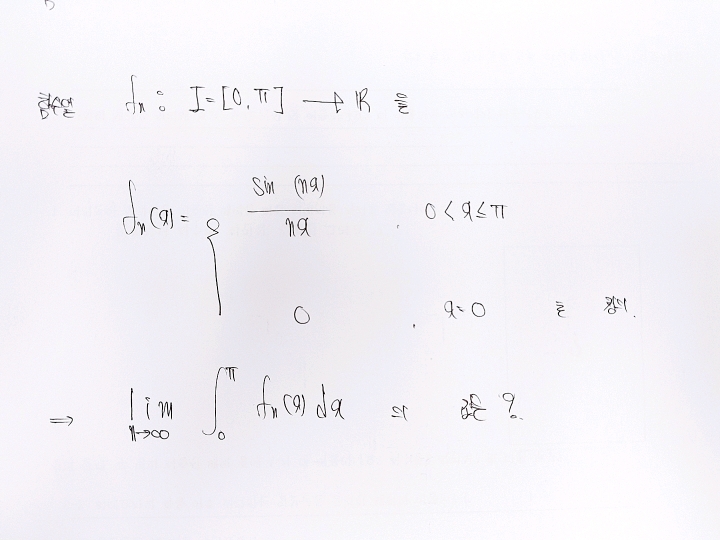 함수열 fn : I = [0, π] → ℝ 을
fn(x) = { sin (nx) / nx , 0 < x ≤ π
0 , x = 0 로 정의.
⇒ lim n→∞ ∫₀^π fn(x) dx 의 값은?